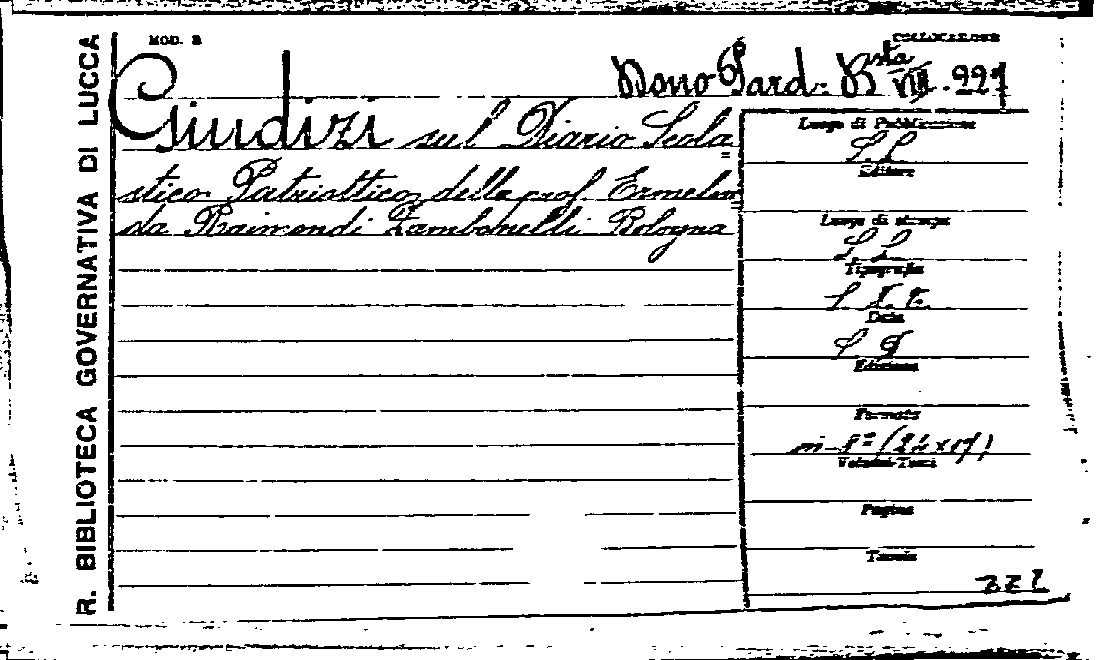 R. BIBLIOTECA GOVERNATIVA DI LUCCA
MOD. B
COLLOCAZIONE
Dono Pard. Bsta VIII. 227
Giudizi sul Diario Scola=
stico Patriottico della prof. Ermelin=
da Raimondi Zambonelli Bologna
Luogo di Pubblicazione
S. L.
Editore
Luogo di stampa
S. L.
Tipografia
S. T.
Data
Edizione
Formato
in-8º (24x17)
Volumi-Tomi
Pagine
Tavole